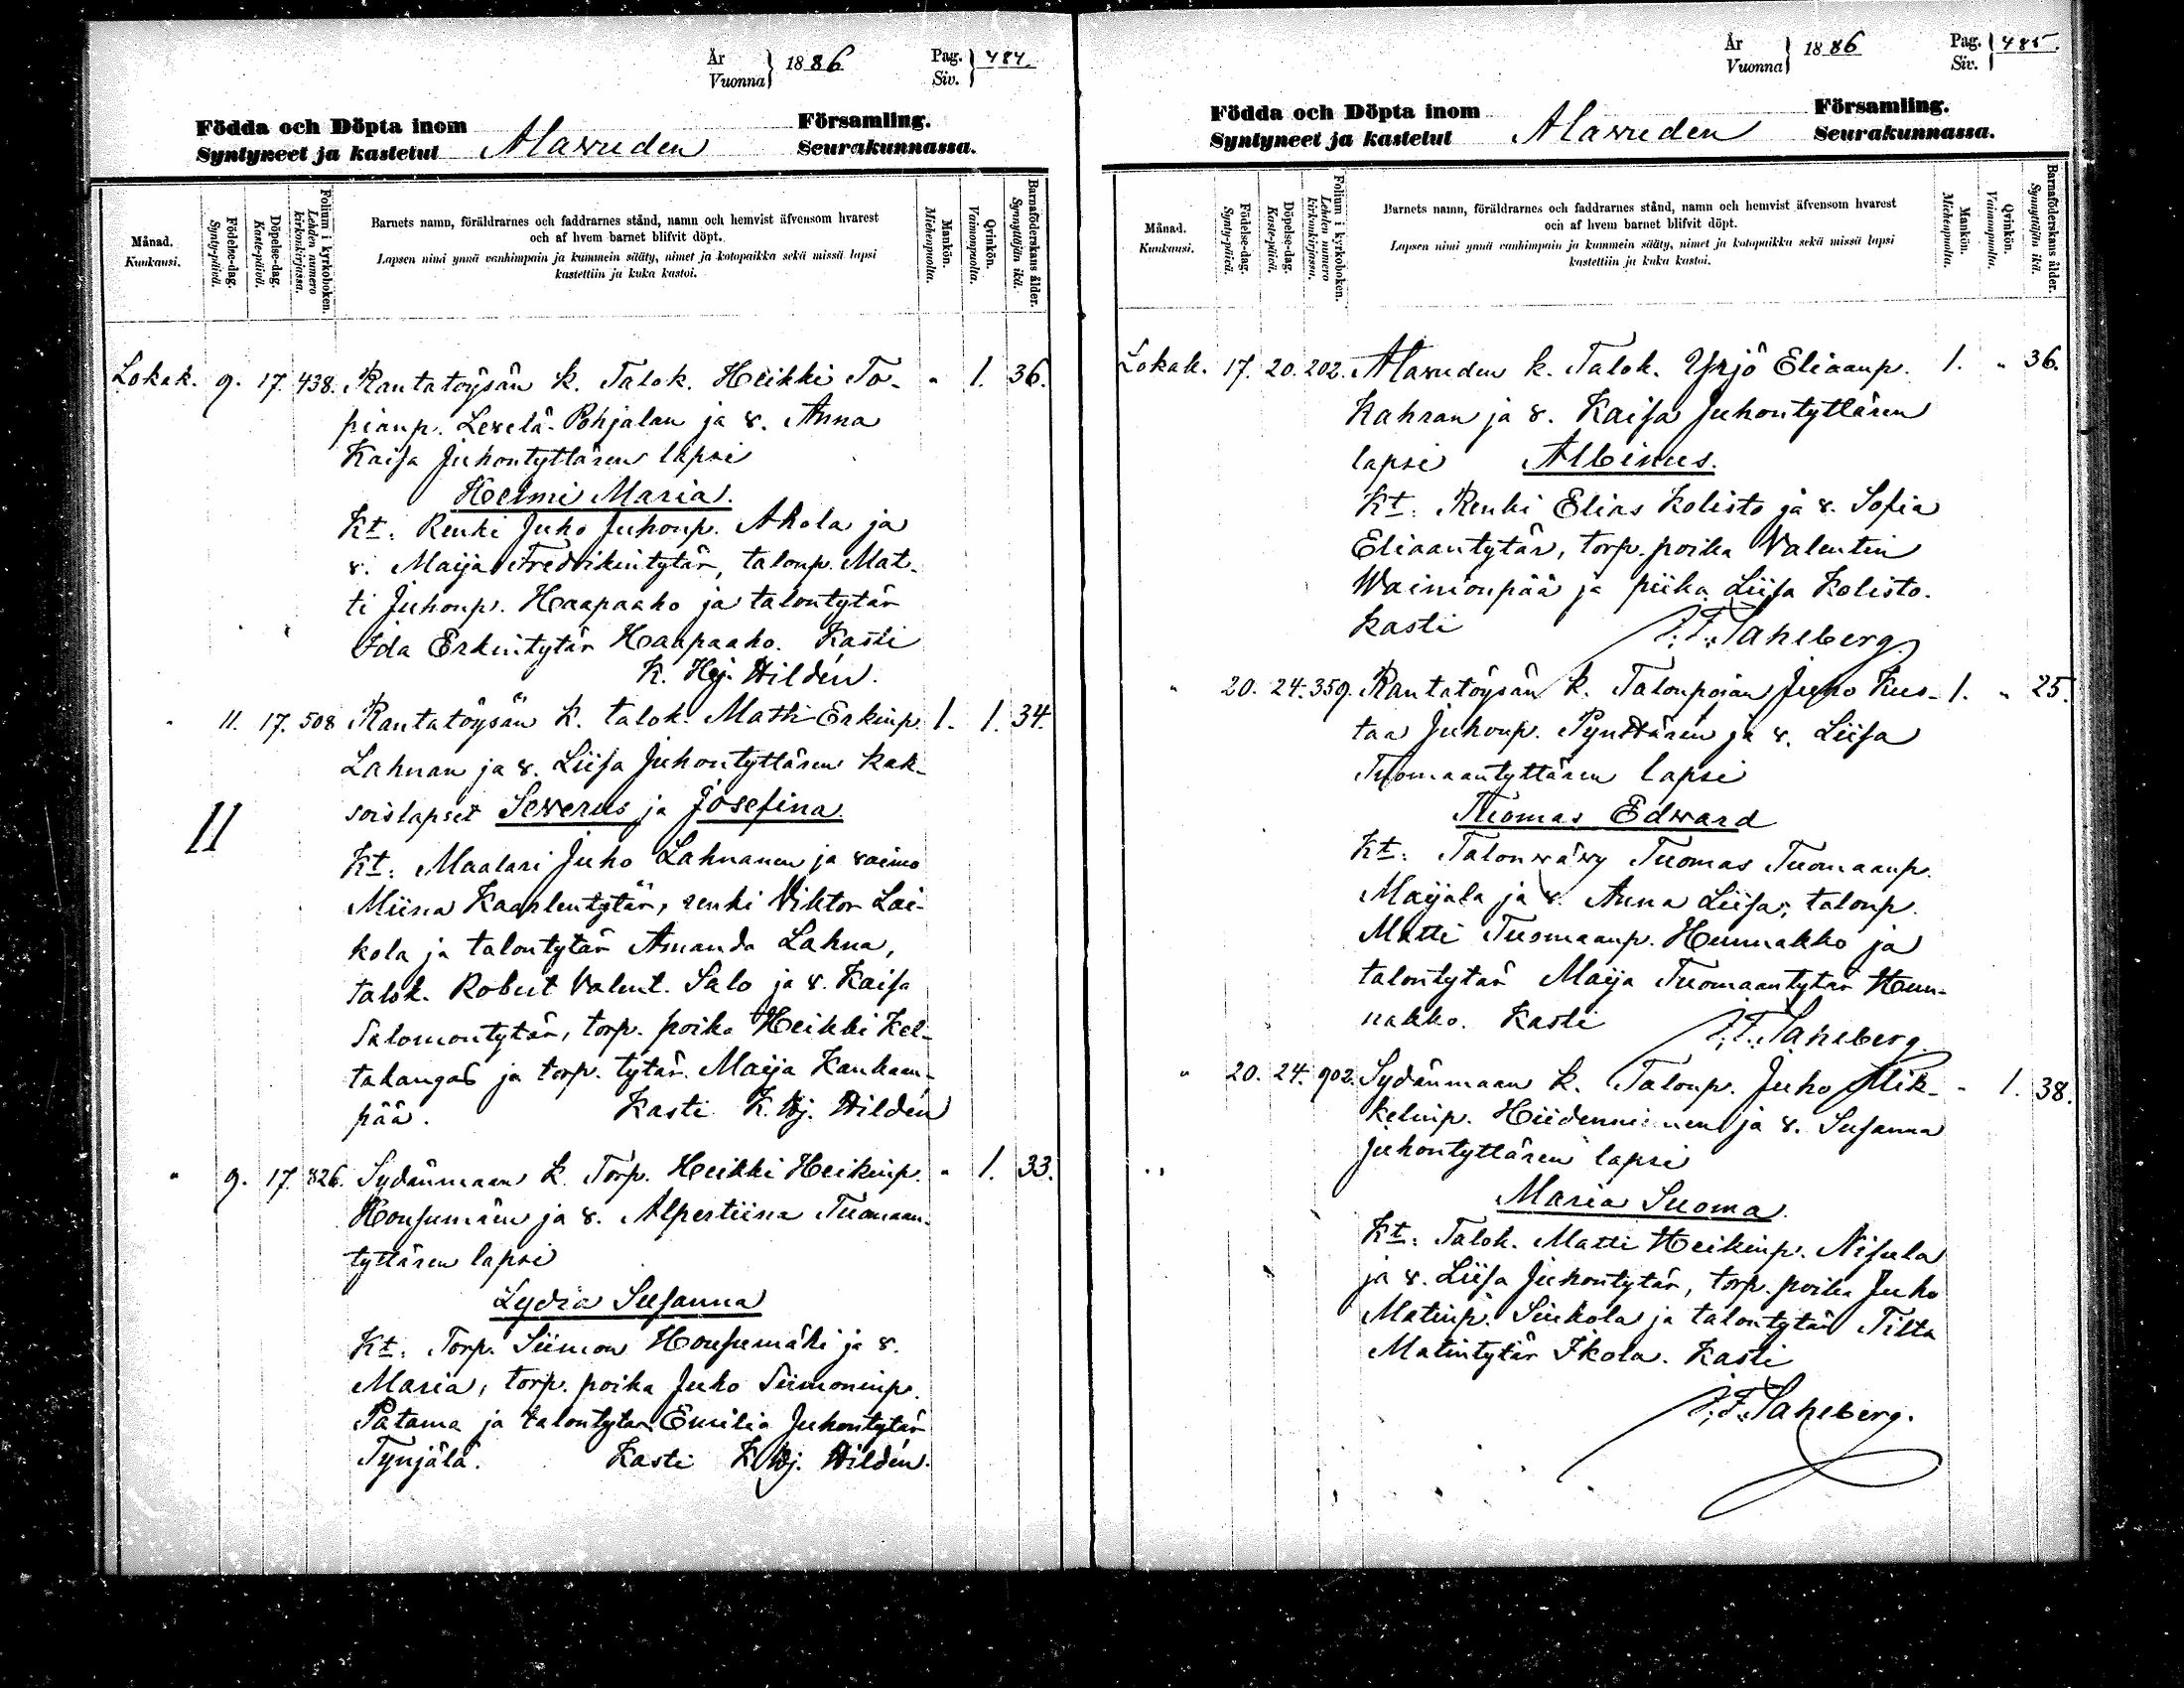 År
Vuonna
1886
Pag.
Siv.
484.
Födda och Döpta inom
Syntyneet ja kastetut
Alavuden
Församling.
Seurakunnassa.
Månad.
Kuukausi.
Födelse-dag.
Synty-päivä.
Döpelse-dag.
Kaste-päivä.
Folium i kyrkoboken.
Lehden numero
kirkonkirjassa.
Barnets namn, föräldrarnes och faddrarnes stånd, namn och hemvist äfvensom hvarest
och af hvem barnet blifvit döpt.
Lapsen nimi ynnä vanhimpain ja kummein sääty, nimet ja kotopaikka sekä missä lapsi
kastettiin ja kuka kastoi.
Mankön.
Miehenpuolta.
Qvinkön.
Vaimonpuolta.
Barnaföderskans ålder.
Synnyttäjän ikä.
Lokak. 9. 17. 438. Rantatöysän k. Talok. Heikki To- " 1. 36.
pianp. Leselä-Pohjalan ja v. Anna
Kaisa Juhontyttären lapsi
Helmi Maria.
Kt: Renki Juho Juhonp. Ahola ja
v. Maija Fredrikintytär, talonp. Mat-
ti Juhonp. Haapaaho ja talontytär
Ida Erkintytär Haapaaho. Kasti
K. Hj. Hildén.
" 11. 17. 508 Rantatöysän k. talok. Matti Erkinp. 1. 1. 34.
Lahnan ja v. Liisa Juhontyttären kak-
soislapset Severus ja Josefina.
11
Kt: Maalari Juho Lahnanen ja vaimo
Miina Kaarlentytär, renki Viktor Lai-
kola ja talontytär Amanda Lahna,
talok. Robert Valent. Salo ja v. Kaisa
Salomontytär, torp. poika Heikki Kel-
takangas ja torp. tytär Maija Kauhan-
pää. Kasti K. Hj. Hildén
" 9. 17. 826. Sydänmaan k. Torp. Heikki Heikinp. " 1. 33.
Honsumäen ja v. Alpertiina Tuomaan-
tyttären lapsi
Lydia Susanna
Kt: Torp. Siimon Honsumäki ja v.
Maria, torp. poika Juho Siimoninp.
Patama ja talontytär Emilia Juhontytär
Tynjälä. Kasti K. Hj. Hildén.
År
Vuonna
1886
Pag.
Siv.
485.
Födda och Döpta inom
Syntyneet ja kastetut
Alavuden
Församling.
Seurakunnassa.
Månad.
Kuukausi.
Födelse-dag.
Synty-päivä.
Döpelse-dag.
Kaste-päivä.
Folium i kyrkoboken.
Lehden numero
kirkonkirjassa.
Barnets namn, föräldrarnes och faddrarnes stånd, namn och hemvist äfvensom hvarest
och af hvem barnet blifvit döpt.
Lapsen nimi ynnä vanhimpain ja kummein sääty, nimet ja kotopaikka sekä missä lapsi
kastettiin ja kuka kastoi.
Mankön.
Miehenpuolta.
Qvinkön.
Vaimonpuolta.
Barnaföderskans ålder.
Synnyttäjän ikä.
Lokak. 17. 20. 202. Alavuden k. Talok. Yrjö Eliaanp. 1. " 36.
Kahran ja v. Kaisa Juhontyttären
lapsi Albinus.
Kt: Renki Elias Kolisto ja v. Sofia
Eliaantytär, torp. poika Valentin
Wainionpää ja piika Liisa Kolisto.
Kasti J. F. Sahlberg.
" 20. 24. 359. Rantatöysän k. Talonpojan Juho Kus- 1. " 25.
taa Juhonp. Pynttären ja v. Liisa
Tuomaantyttären lapsi
Tuomas Edvard
Kt: Talonvävy Tuomas Tuomaanp.
Maijala ja v. Anna Liisa, talonp.
Matti Tuomaanp. Hunnakko ja
talontytär Maija Tuomaantytär Hun-
nakko. Kasti J. F. Sahlberg.
" 20. 24. 902. Sydänmaan k. Talonp. Juho Mik- " 1. 38.
kelinp. Hiidenniemen ja v. Susanna
Juhontyttären lapsi
Maria Suoma.
Kt: Talok. Matti Heikinp. Nisula
ja v. Liisa Juhontytär, torp. poika Juho
Matinp. Sinkola ja talontytär Tilta
Matintytär Ikola. Kasti
J. F. Sahlberg.